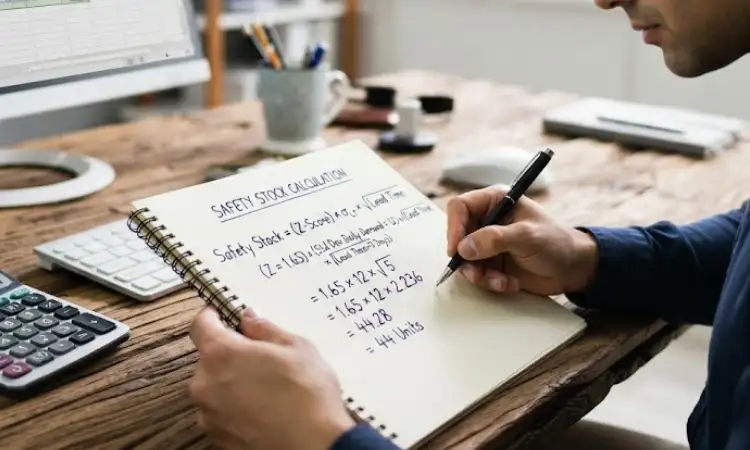 SAFETY STOCK CALCULATION
Safety Stock = (Z-Score) × σ × √Lead Time
(Z = 1.65) × (Std Dev Daily Demand = 12) × √(Lead Time=5 Days)
= 1.65 × 12 × √5
= 1.65 × 12 × 2.236
= 44.28
= 44 Units